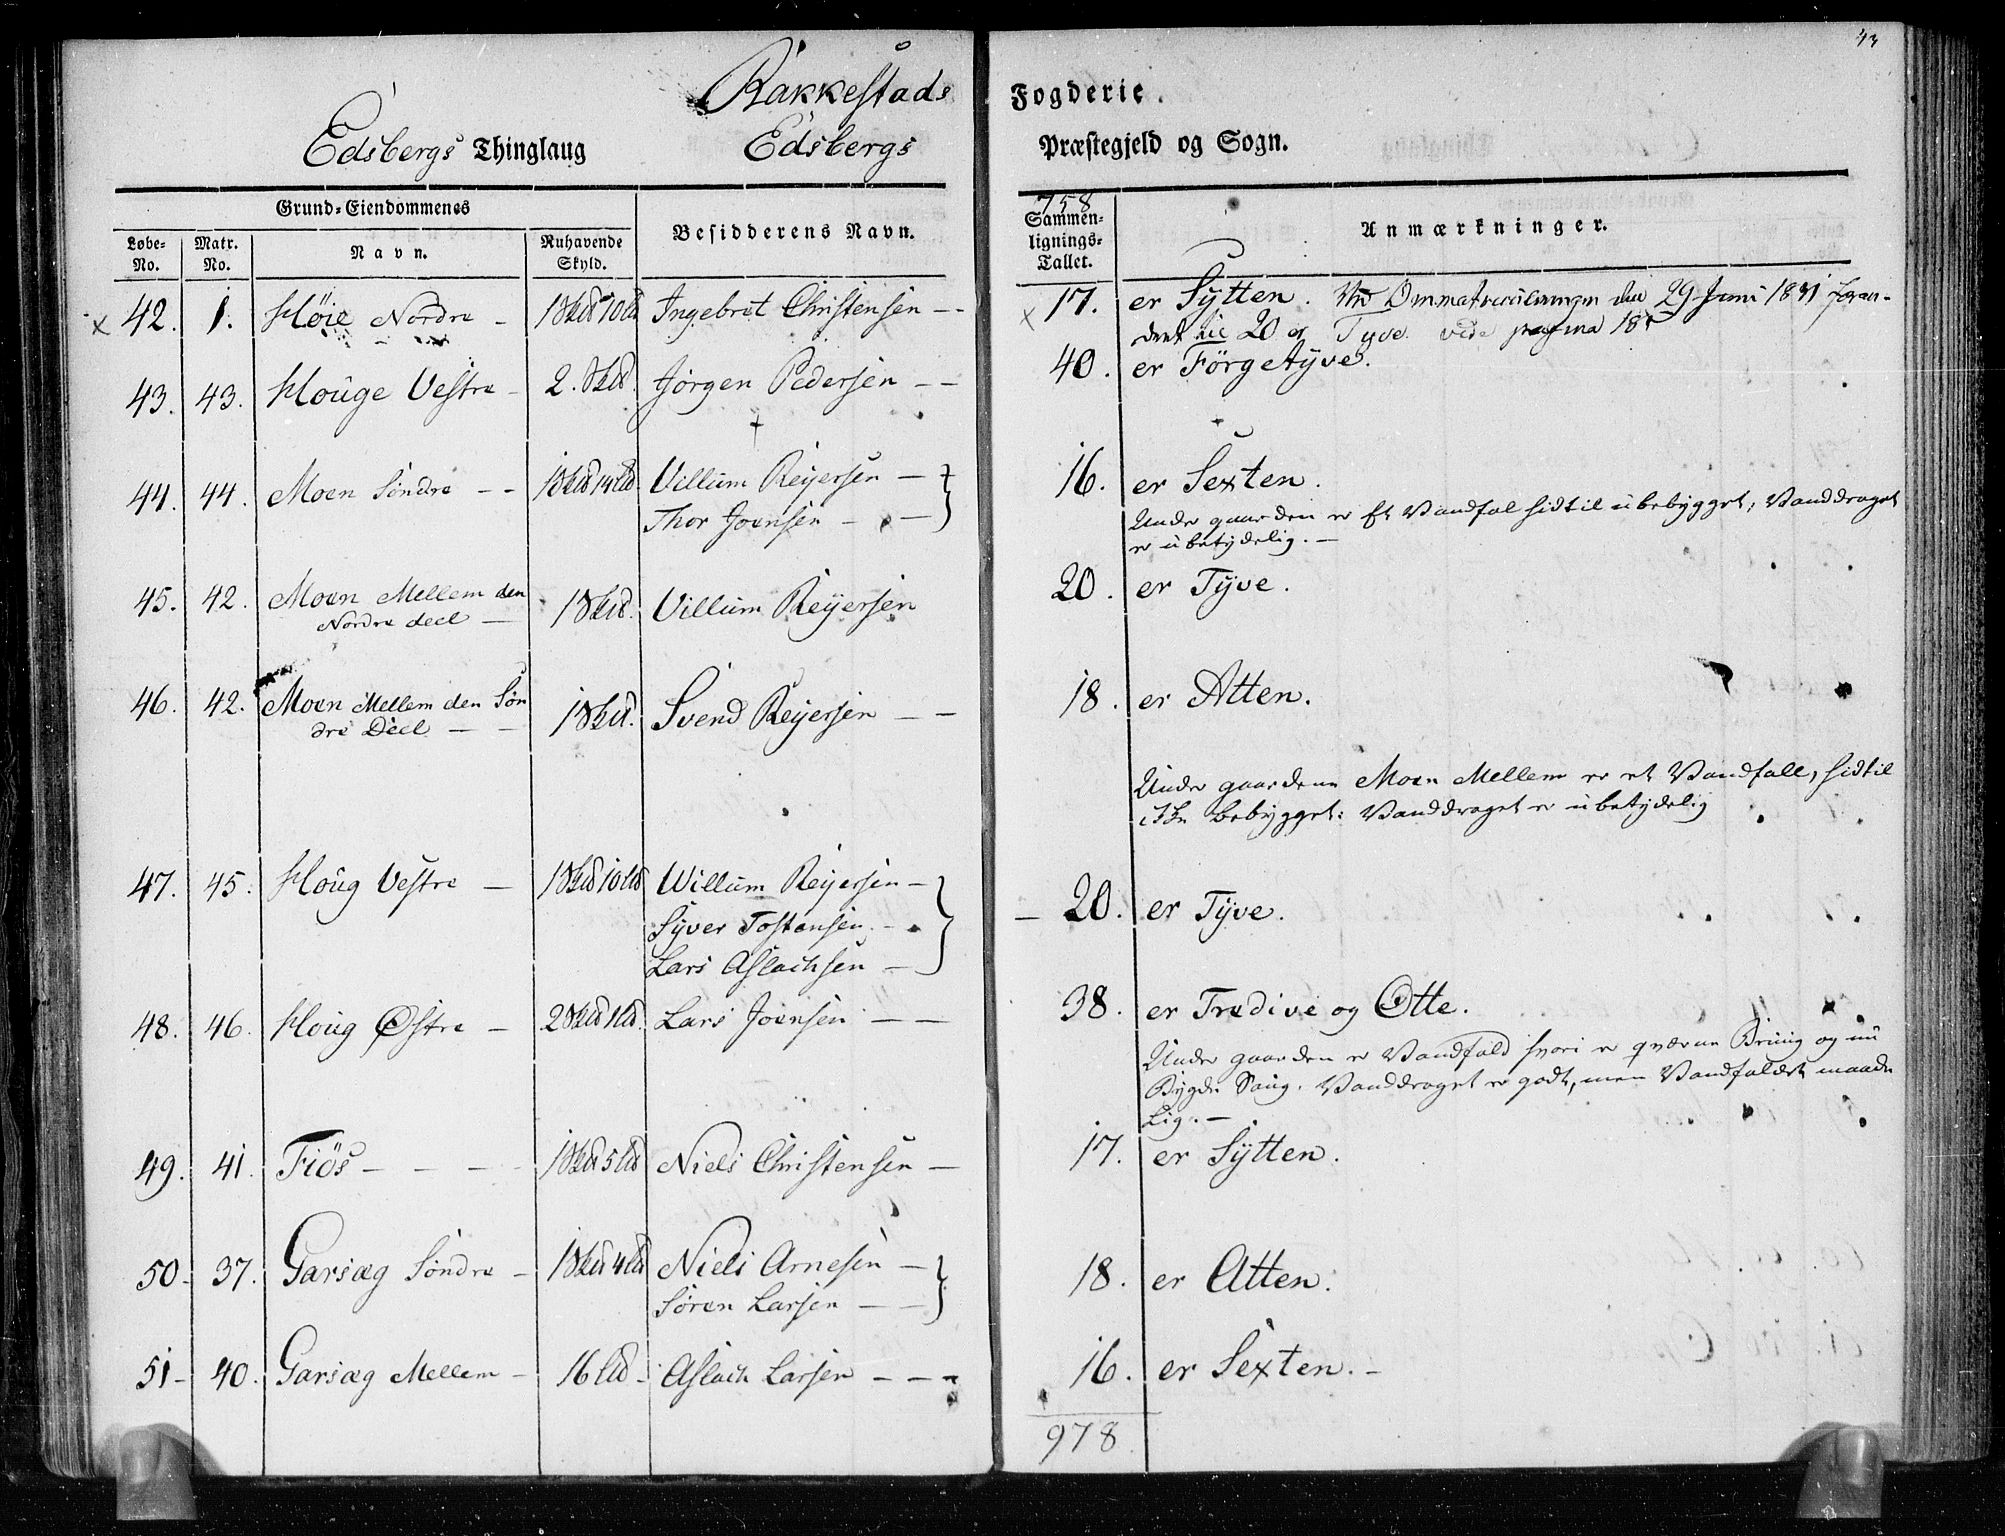 43
Rakkestads Fogderie.
Edsbergs Thinglaug Edsbergs Præstegjeld og Sogn.
Grund-Eiendommenes
Løbe-No. Matr. No. Navn. Ruhavende Skyld. Besidderens Navn. Sammenlignings-Tallet. Anmærkninger.
758
x 42. 1. Høie Nordre - 1 Skd 10 ld Ingebret Christensen - - x 17. er Sÿtten. Ommatriculeringen den 29 Juni 1831 foran-
dret til 20 er Tyve. vide pagina
43. 43. Houge Vestre - 2. Skd. Jørgen Pedersen - - 40. er Förgetÿve.
44. 44. Moen Söndre - - 1 Skd 14 ld Villum Reÿersen - 16. er Sexten.
Thor Joensen - -
Under gaarden er Et Vandfal hidtil ubebygget, Vanddraget
er ubetydelig. -
45. 42. Moen Mellem den 1 Skd. Villum Reÿersen 20. er Tÿve.
Nordre deel -
46. 42. Moen Mellem den Søn 1 Skd. Svend Reÿersen - - 18. er Atten.
dre Deel - -
Under gaardene Moen Mellem er et Vandfall, hidtil
ikke bebygget: Vanddraget er ubetydelig
47. 45. Houg Vestre - 1 Skd 10 ld Willum Reÿersen - - 20. er Tÿve.
Syver Tostensen. -
Lars Aslachsen -
48. 46. Houg Østre - 2 Skd 1 ld. Lars Joensen - - 38. er Tredive og Otte.
Under gaarden er Vandfald hvori er qværne Brüüg og nu
Bygde Saug. Vanddraget er godt, men Vandfaldet maade
Lig. -
49. 41. Fiös - - - - 1 Skd 5 ld Niels Christensen - 17. er Sÿtten.
50 - 37. Garsæg Söndre - 1 Skd 4 ld Niels Arnesen - 18. er Atten.
Søren Larsen - -
51 - 40. Garsæg Mellem - 16 ld - Aslach Larsen - - - 16. er Sexten. -
978